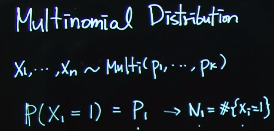 Multinomial Distribution
X₁, ⋯, Xₙ ~ Multi(p₁, ⋯, pₖ)
P(X₁ = 1) = P₁ → N₁ = #{Xᵢ=1}